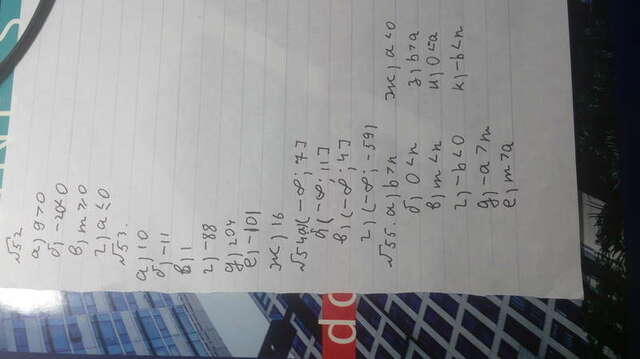 √52
а) 9>0
б) -20<0
в) m≥0
г) a≤0
√53.
а) 10
б) -11
в) 1
г) -88
д) 204
е) -101
ж) 16
√54 а) (-∞; 7]
б) (-∞; 11]
в) (-∞; 4]
г) (-∞; -59)
√55. а) b>n
б) 0<n
в) m<n
г) -b<0
д) -a>m
е) m>a
ж) a<0
з) b>a
и) 0≤a
к) -b<n
do